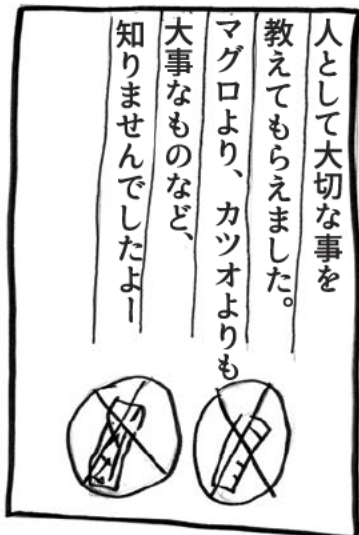 人として大切な事を
教えてもらえました。
マグロより、カツオよりも
大事なものなど、
知りませんでしたよー